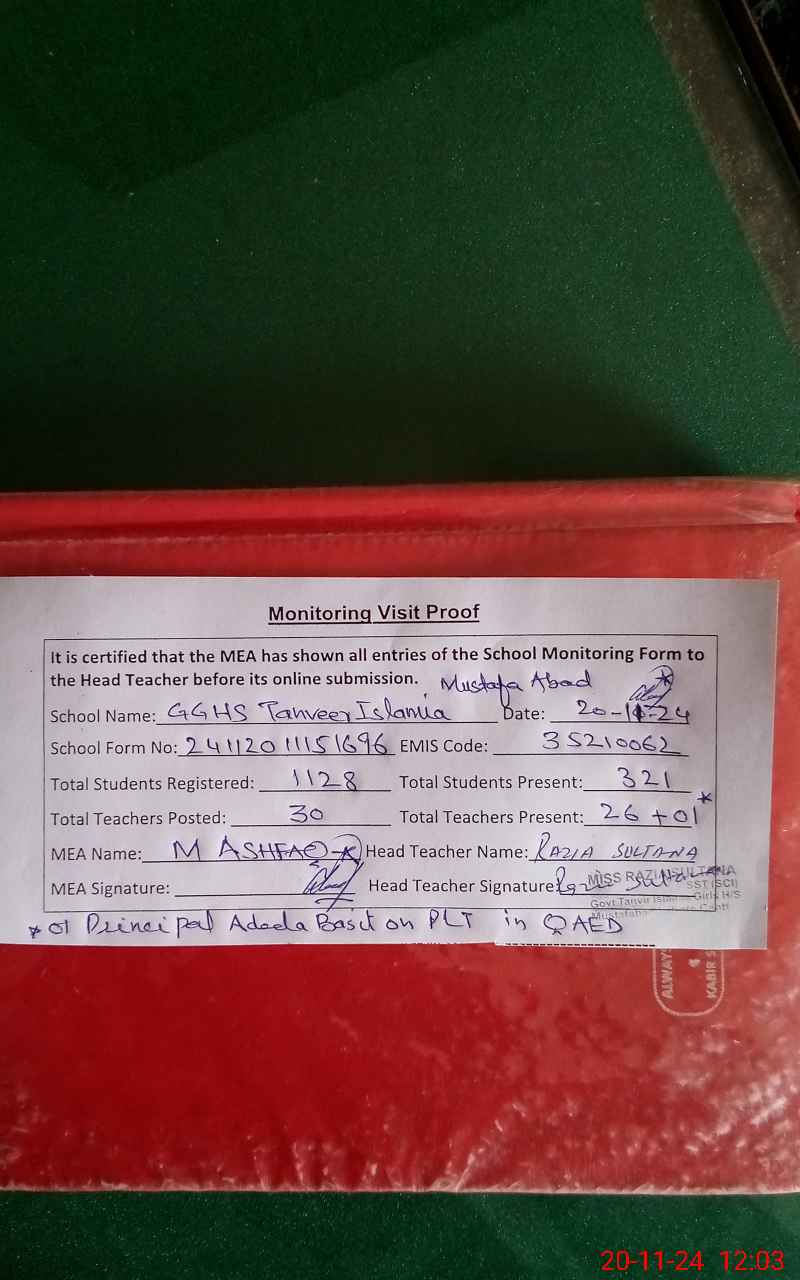 Monitoring Visit Proof
It is certified that the MEA has shown all entries of the School Monitoring Form to
the Head Teacher before its online submission.
Mustafa Abad
School Name: GGHS Tanveer Islamia Date: 20-11-24
School Form No: 24112011151696 EMIS Code: 35210062
Total Students Registered: 1128 Total Students Present: 321
Total Teachers Posted: 30 Total Teachers Present: 26 + 01*
MEA Name: M ASHFAQ Head Teacher Name: RAZIA SULTANA
MEA Signature: Head Teacher Signature: Razia Sultana
MISS RAZIA SULTANA
SST (SCI)
Govt. Tanvir Girls H/S
* 01 Principal Adeela Basit on PLT in QAED
ALWAYS
KABIR S
20-11-24 12:03